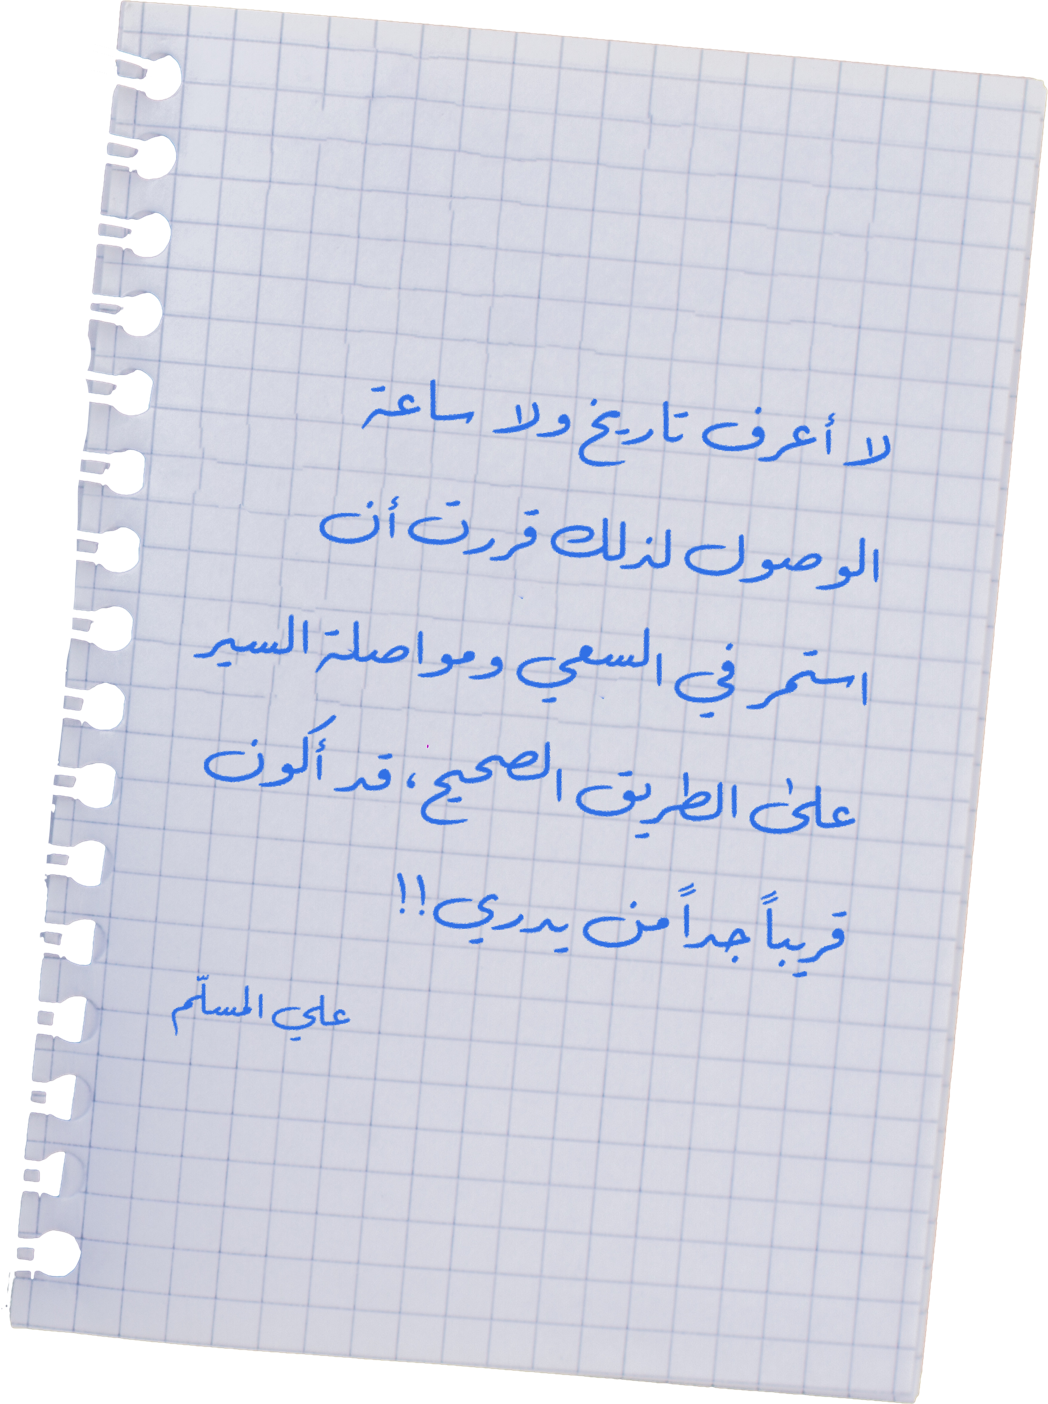 لا أعرف تاريخ ولا ساعة
الوصول لذلك قررت أن
استمر في السعي ومواصلة السير
على الطريق الصحيح، قد أكون
قريباً جداً من يدري!!
علي المسلّم